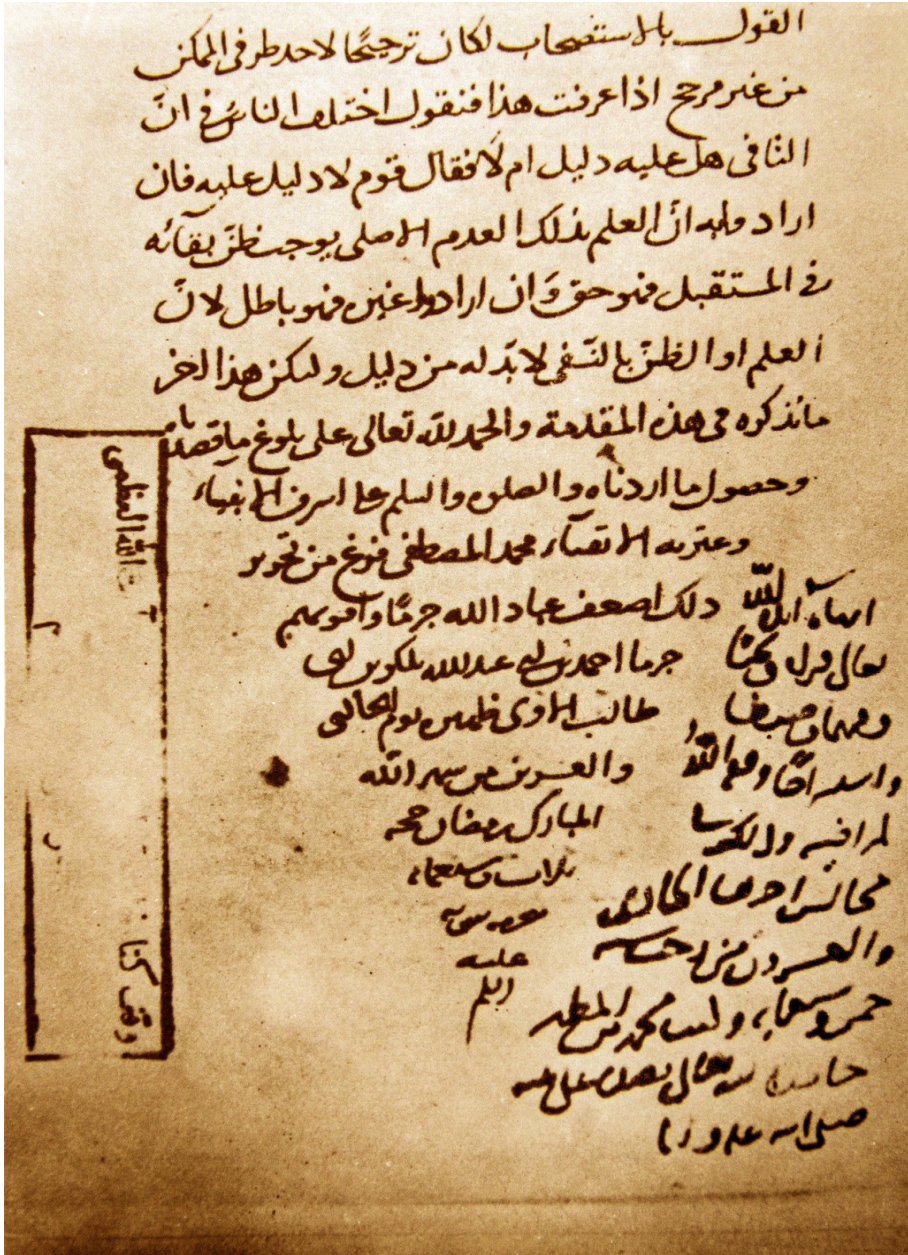 القول بالاستصحاب لكان ترجيحًا لاحد طرفى الممكن
من غير مرجح اذا عرفت هذا فنقول اختلف الناس فى انّ
النافى هل عليه دليل ام لا فقال قوم لا دليل عليه فان
ارادوا به انّ العلم بذلك العدم الاصلى يوجب ظنّ بقآئه
فى المستقبل فهو حق وَان ارادوا غيره فهو باطل لانّ
العلم او الظنّ بالنّفى لا بدّ له من دليل وليكن هذا اخر
ما نذكره فى هذه المقدمة والحمد للّه تعالى على بلوغ ما قصدناه
وحصول ما اردناه والصلوه والسلم على اشرف الانبياء
وعترته الاتقيآء محمد المصطفى فرغ من تحرير
ذلك اضعف عباد الله جرمًا واقويهم
جرما احمد بن ابى عبدالله بلكو بن ابى
طالب الاوى ظهيره يوم الحادى
والعشرين من شهر الله
المبارك رمضان حجه
ثلاث وسبعماه
عليه
السلم
انهاه ايّده اللّه
تعالى قراه وبحثا
وفهما وضبطا
واستشراحًا وفقه اللّه
لمراضيه وذلك فى
مجالس اخرها الحادى
والعشرون من رجب سنه
خمس وسبعمايه وكتب محمد بن المطهر
حامدا لله تعالى مصليا على نبيه
صلى الله عليه و
آية الله العظمى
وقف كتا